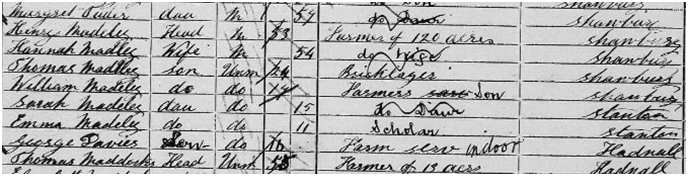 Margret Puder dau M 59 do Daur Shanbury
Henry Madeley Head M 53 Farmer of 120 acres Shanbury
Hannah Madley Wife M 54 do Wife Shanbury
Thomas Madley son Unm 24 Bricklayer Shanbury
William Madeley do do 19 Farmers Son Shanbury
Sarah Madeley dau do 15 do Daur Stanton
Emma Madeley do do 11 Scholar Stanton
George Davies Serv do 16 Farm serv indoor Hadnall
Thomas Maddocks Head Unm 58 Farmer of 13 acrs Hadnall